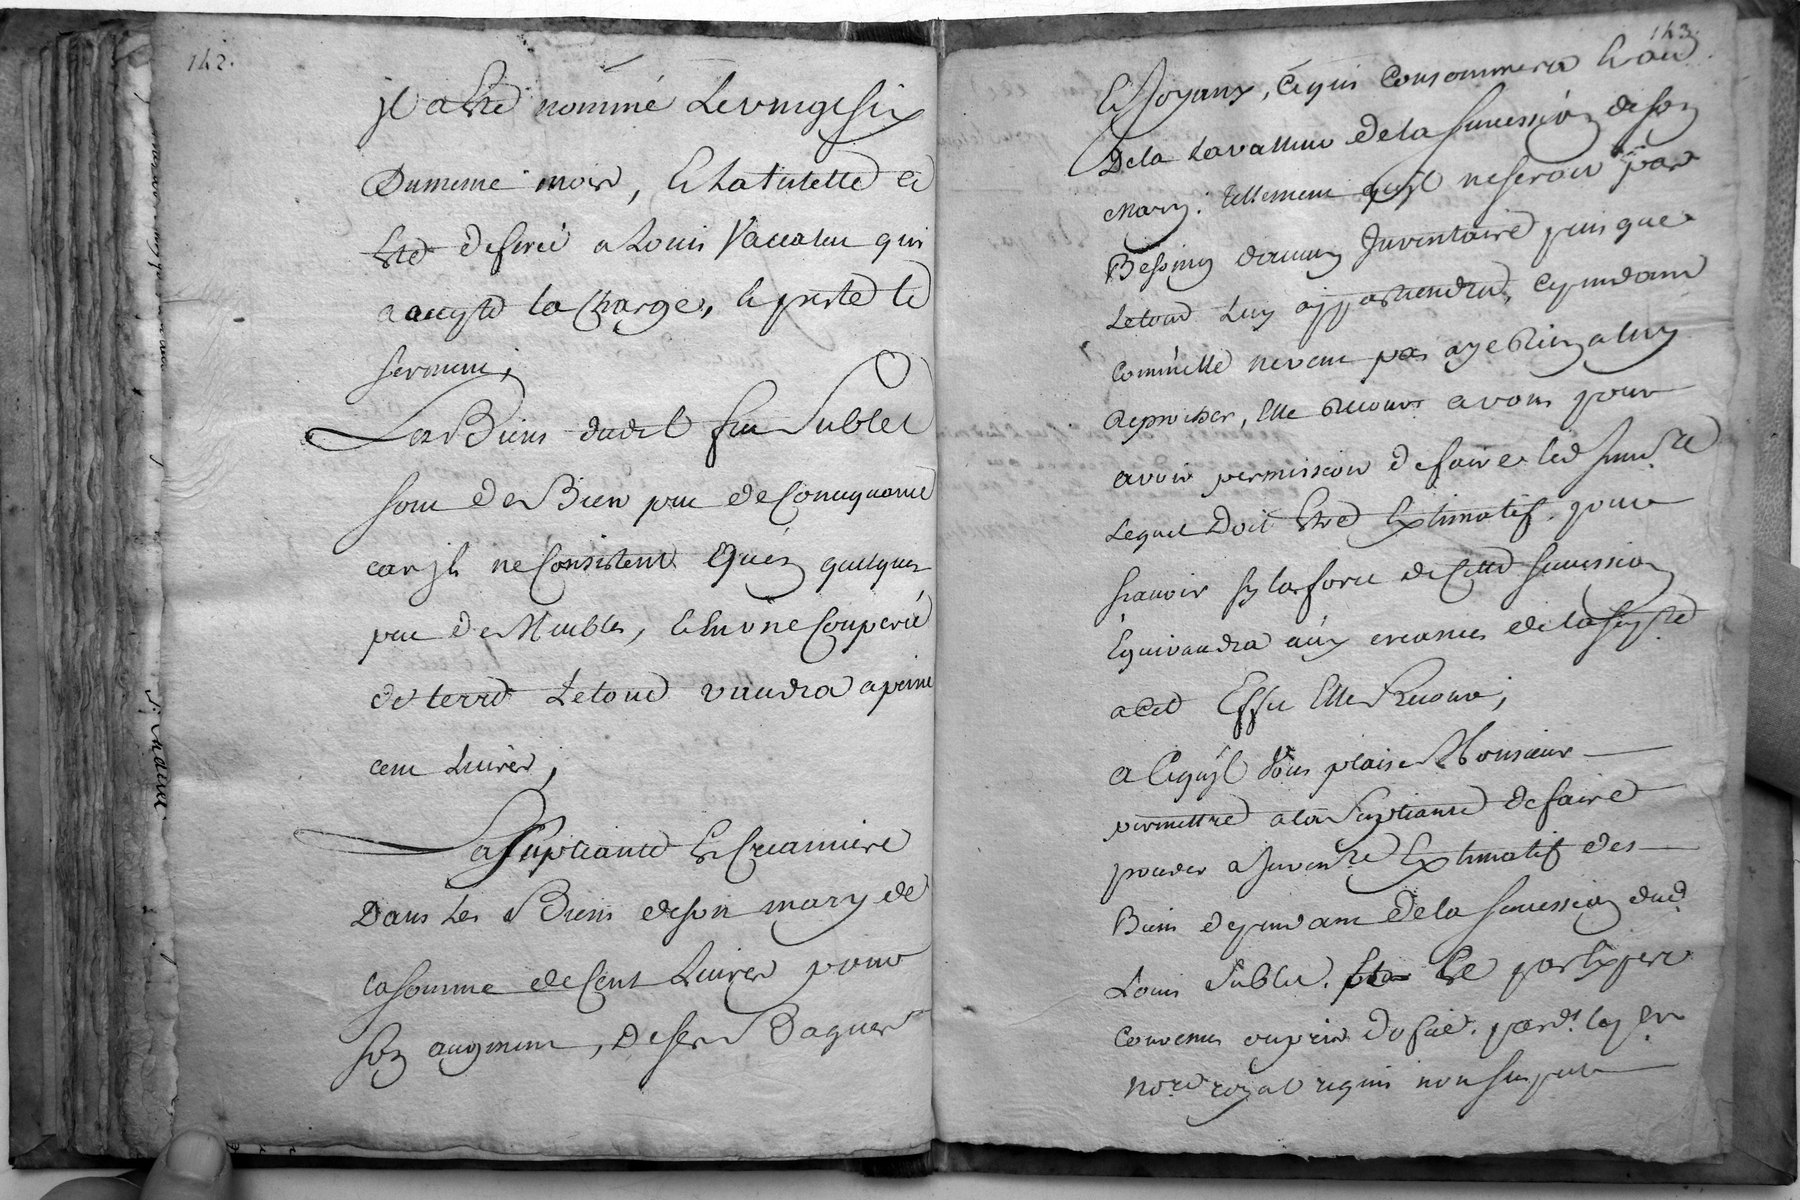 142.
jl a Esté nommé Le vingt six
Du meme mois, Et La tutelle a
Esté deferée a Louis Vacalus qui
a accepté la Charge, Et presté le
serment,
Les Biens dudit feu Sublet
sont des Bien peu de Consequance
car jls ne Consistent Qu'en quelques
peu de Meubles, Et En vne Couperie
de terre Le tout vaudra a peine
cent Livres,
La Supliante Est Creanciere
Dans Les Biens de son mary de
la somme de Cent Livres pour
son augment, De ses Bagues
143.
Et Joyaux, Ce qui Consommera Et au
Dela La valleur de la succession de son
Mary. Tellement qu'jl ne seroit pas
Besoing d'aucun Inventaire puis que
Le tout Luy appartiendra, Cependant
Comm'elle ne veut pas aye Rien a luy
Reprocher, Elle Recourt a vous pour
avoir permission de faire led Invre
Lequel Doit Estre Extimatif pour
scauoir sy la force de Cette succession
Equivaudra aux creances de la supte
a Cet Effet Elle Recourt,
a Ce qu'jl Vous plaise Monsieur
permettre a la Supliante de faire
proceder a Inventre Extimatif des
Biens dependant de la succession dud
Louis Sublet. Et Ce par Expert
Convenus ou pris d'office. pard. le pr
nore royal requis non suspect